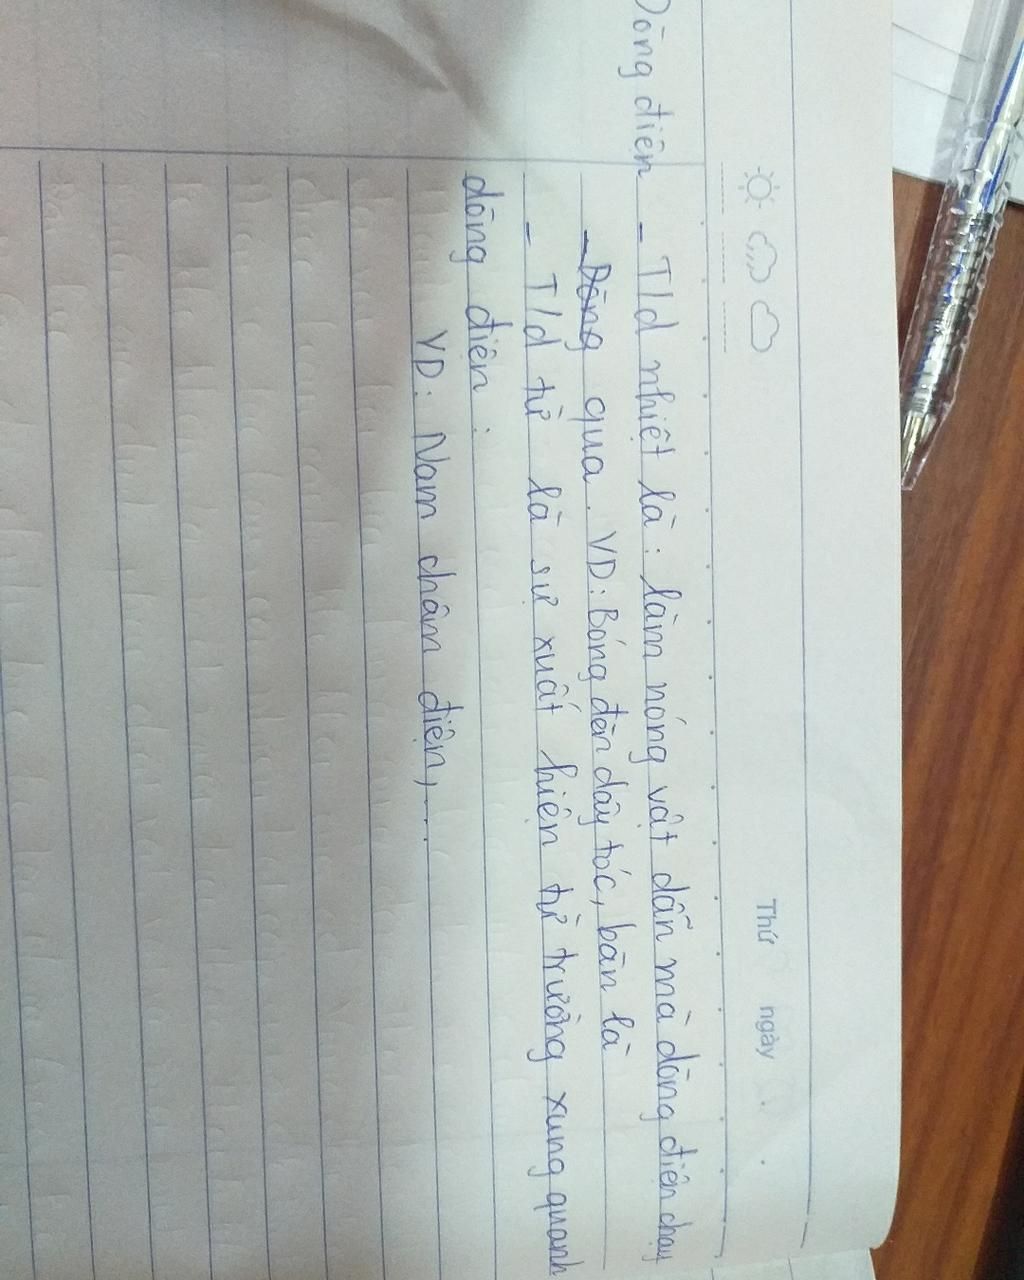 Thứ ngày
Dòng điện - T/d nhiệt là : làm nóng vật dẫn mà dòng điện chạy
- Dòng qua. VD: Bóng đèn dây tóc, bàn là
- T/d từ là sự xuất hiện từ trường xung quanh
dòng điện :
VD: Nam châm điện,....